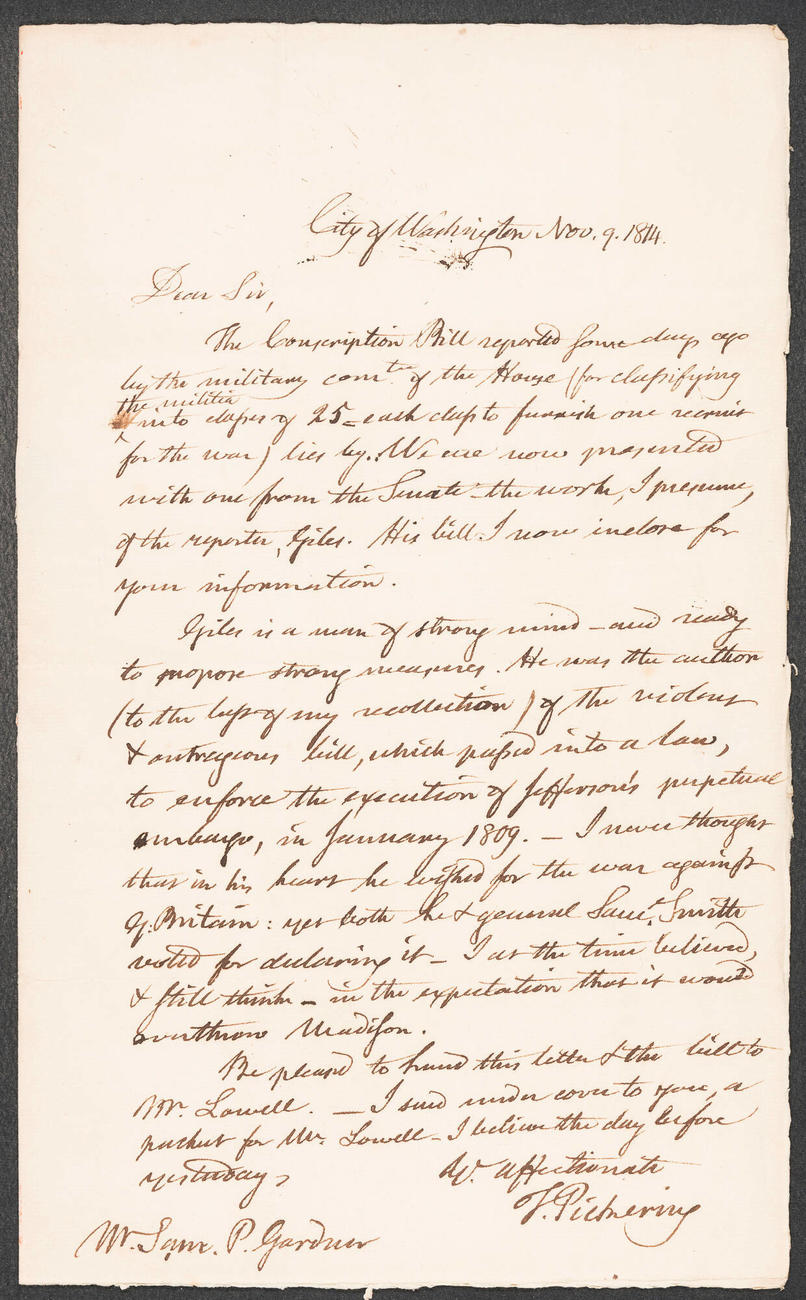 City of Washington Nov. 9. 1814.
Dear Sir,
The Conscription Bill reported some days ago
by the military comtee. of the House (for classifying
the militia
^ into classes of 25 - each class to furnish one recruit
for the war) lies by. We are now presented
with one from the Senate - the work, I presume,
of the reporter, Giles. His bill I now inclose for
your information.
Giles is a man of strong mind - and ready
to propose strong measures. He was the author
(to the best of my recollection) of the violent
& outrageous bill, which passed into a law,
to enforce the execution of Jefferson's perpetual
embargo, in January 1809. - I never thought
that in his heart he wished for the war against
G. Britain: yet both he & general Saml. Smith
voted for declaring it - I at the time believed,
& still think - in the expectation that it would
overthrow Madison.
Be pleased to hand this letter & the bill to
Mr. Lowell. - I send under cover to you, a
packet for Mr. Lowell - I believe the day before
yesterday.
Yr. affectionate
T. Pickering
Mr. Saml. P. Gardner